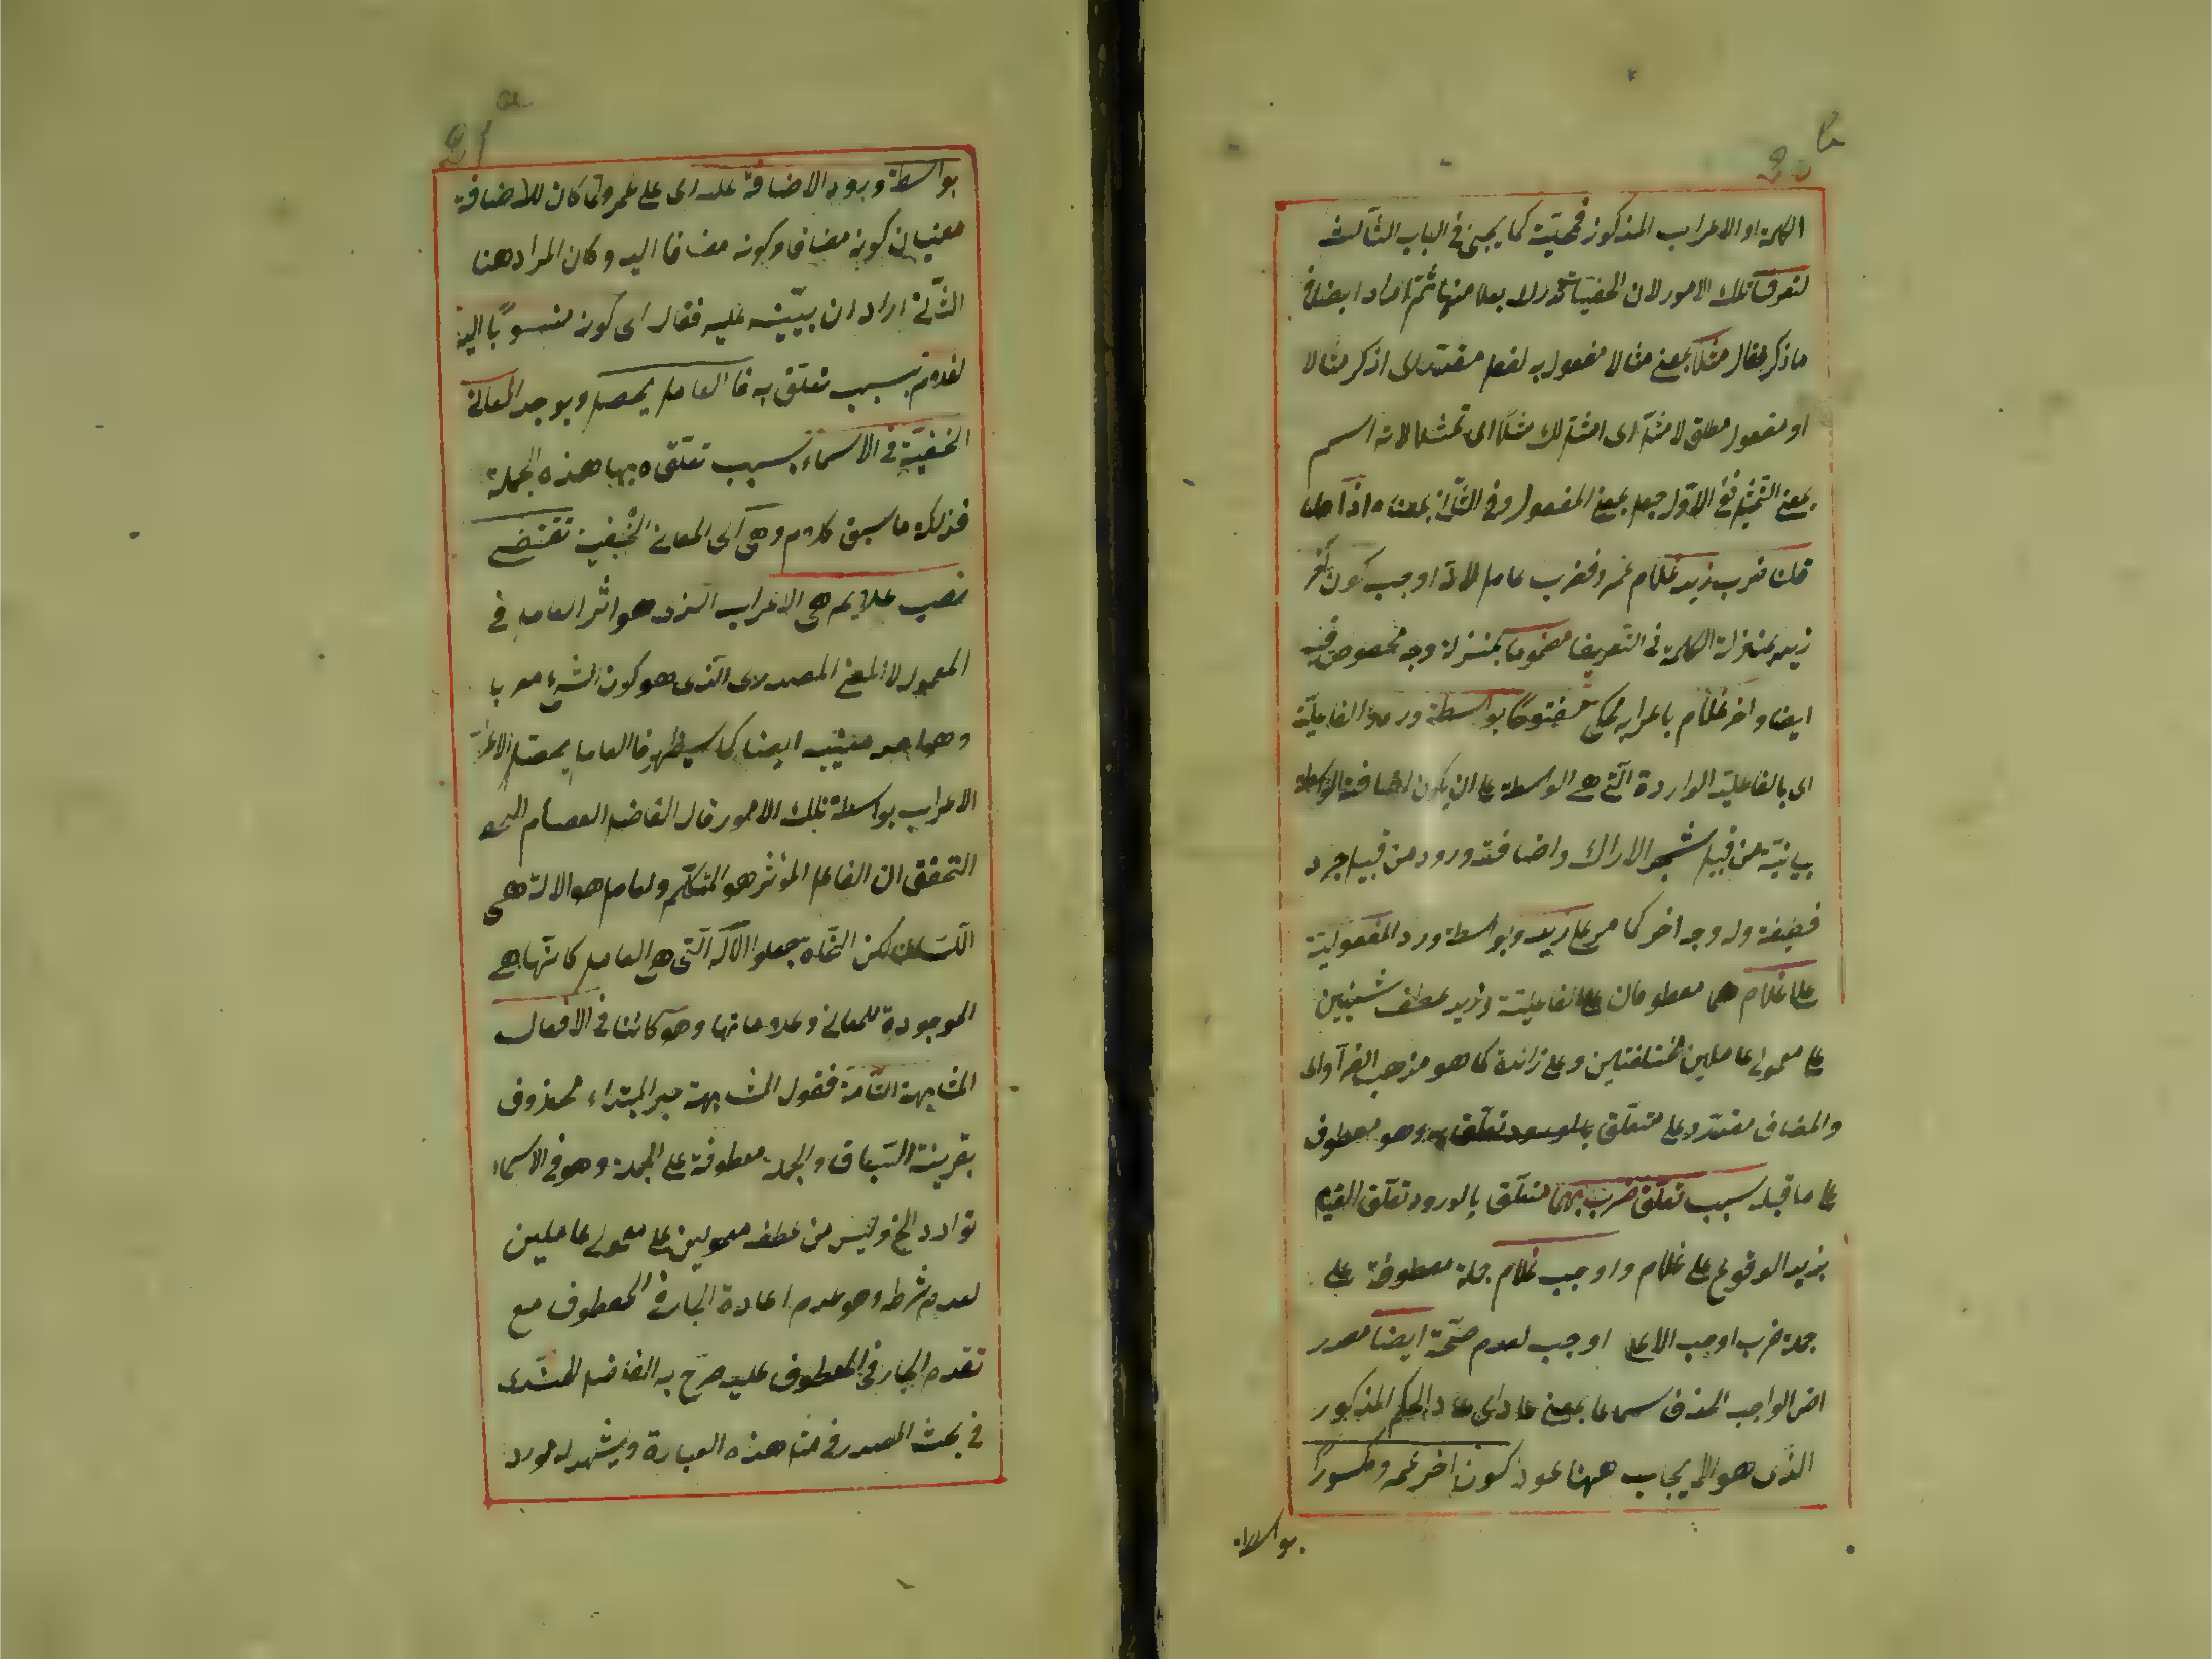 الكلمة او الاعراب المذكور فحميّة كما يجيئ فى الباب الثالث
لتعرف تلك الامور لان الخفيات تدرك بعلامتها ثمّ اراد ايضاح
ما ذكر فقال مثلا بمعنى مثالا مفعول به لفعل مقدر اى اذكر مثالا
او مفعول مطلق لامثل اى امثل لك مثلا اى تمثيلا لانه اسم
بمعنى التمثيل ففى الاوّل جعل بمعنى المفعول وفى الثانى بمعناه اذا
قلنا ضرب زيد غلام عمرو فضرب عامل لانه اوجب كون اخر
زيد بمنزلة الكلمة فى التعريف مضموما بمنزلة وجه مخصوص فيه
ايضا واخر غلام باعرابه لمحكى مفتوحا بواسطة ورود الفاعليّة
اى بالفاعلية الواردة التى هى الواسطة على ان يكون اضافة الواسطة
بيانيّة من قبيل شجر الاراك واضافة ورود من قبيل جرد
قطيفة وله وجه اخر كما مر على زيد وبواسطة ورود المفعولية
على غلام هما معطوفان على الفاعلية وزيد عطف شيئين
على معمولى عاملين مختلفتين وعلى زائدة كما هو مذهب الفرآء
والمضاف مقدر وعلى متعلّق وهو معطوف
على ما قبله بسبب تعلّق ضرب بهما متعلّق بالورود تعلّق القيام
بزيد الوقوع على غلام واوجب غلام جملة معطوفة على
جملة ضرب اوجب الاعلى اوجب لعدم صحّة ايضا مصدر
اض الواجب الحذف سماعا بمعنى عاد اى عاد الحكم المذكور
الذى هو الايجاب ههنا عود كون اخر عمرو مكسورا
بواسطة
بواسطة ورود الاضافة عليه اى على عمرو ولما كان للاضافة
معنيان كونه مضافا وكونه مضافا اليه وكان المراد هنا
الثانى اراد ان يبيّنه عليه فقال اى كونه منسوبا اليه
لغلام بسبب تعلق به فالعامل يحصل ويوجد المعانى
الخفيّة فى الاسماء بسبب تعلّقه بها هذه الجملة
فذلكة ما سبق كلام وهى اى المعانى الخفية تقتضى
نصب علايم هى الاعراب الذى هو اثر العامل فى
المعمول لا المعنى المصدرى الذى هو كون الشئ معربا
ايضا كما سيظهر فالعامل يحصل الاعراب
الاعراب بواسطة تلك الامور قال الفاضل العصام
التحقق ان الفاعل المؤثر هو المتكلم والعامل هو الالة هى
اللسان لكن النحاة جعلوا الآلة التى هى العامل كانّها هى
الموجودة للمعانى وعلاماتها وهو كائنا فى الافعال
المشابهة التامة فقول المشابهة خبر المبتداء محذوف
بقرينة السباق والجملة معطوفة على الجملة وهو فى الاسماء
توارد الخ وليس من عطف معمولين على معمولى عاملين
لعدم شرطه وهو عدم اعادة الجار فى المعطوف مع
تقدم الجار فى المعطوف عليه صرّح به الفاضل
فى بحث المصدر فى مثل هذه العبارة ويشهد له مورد